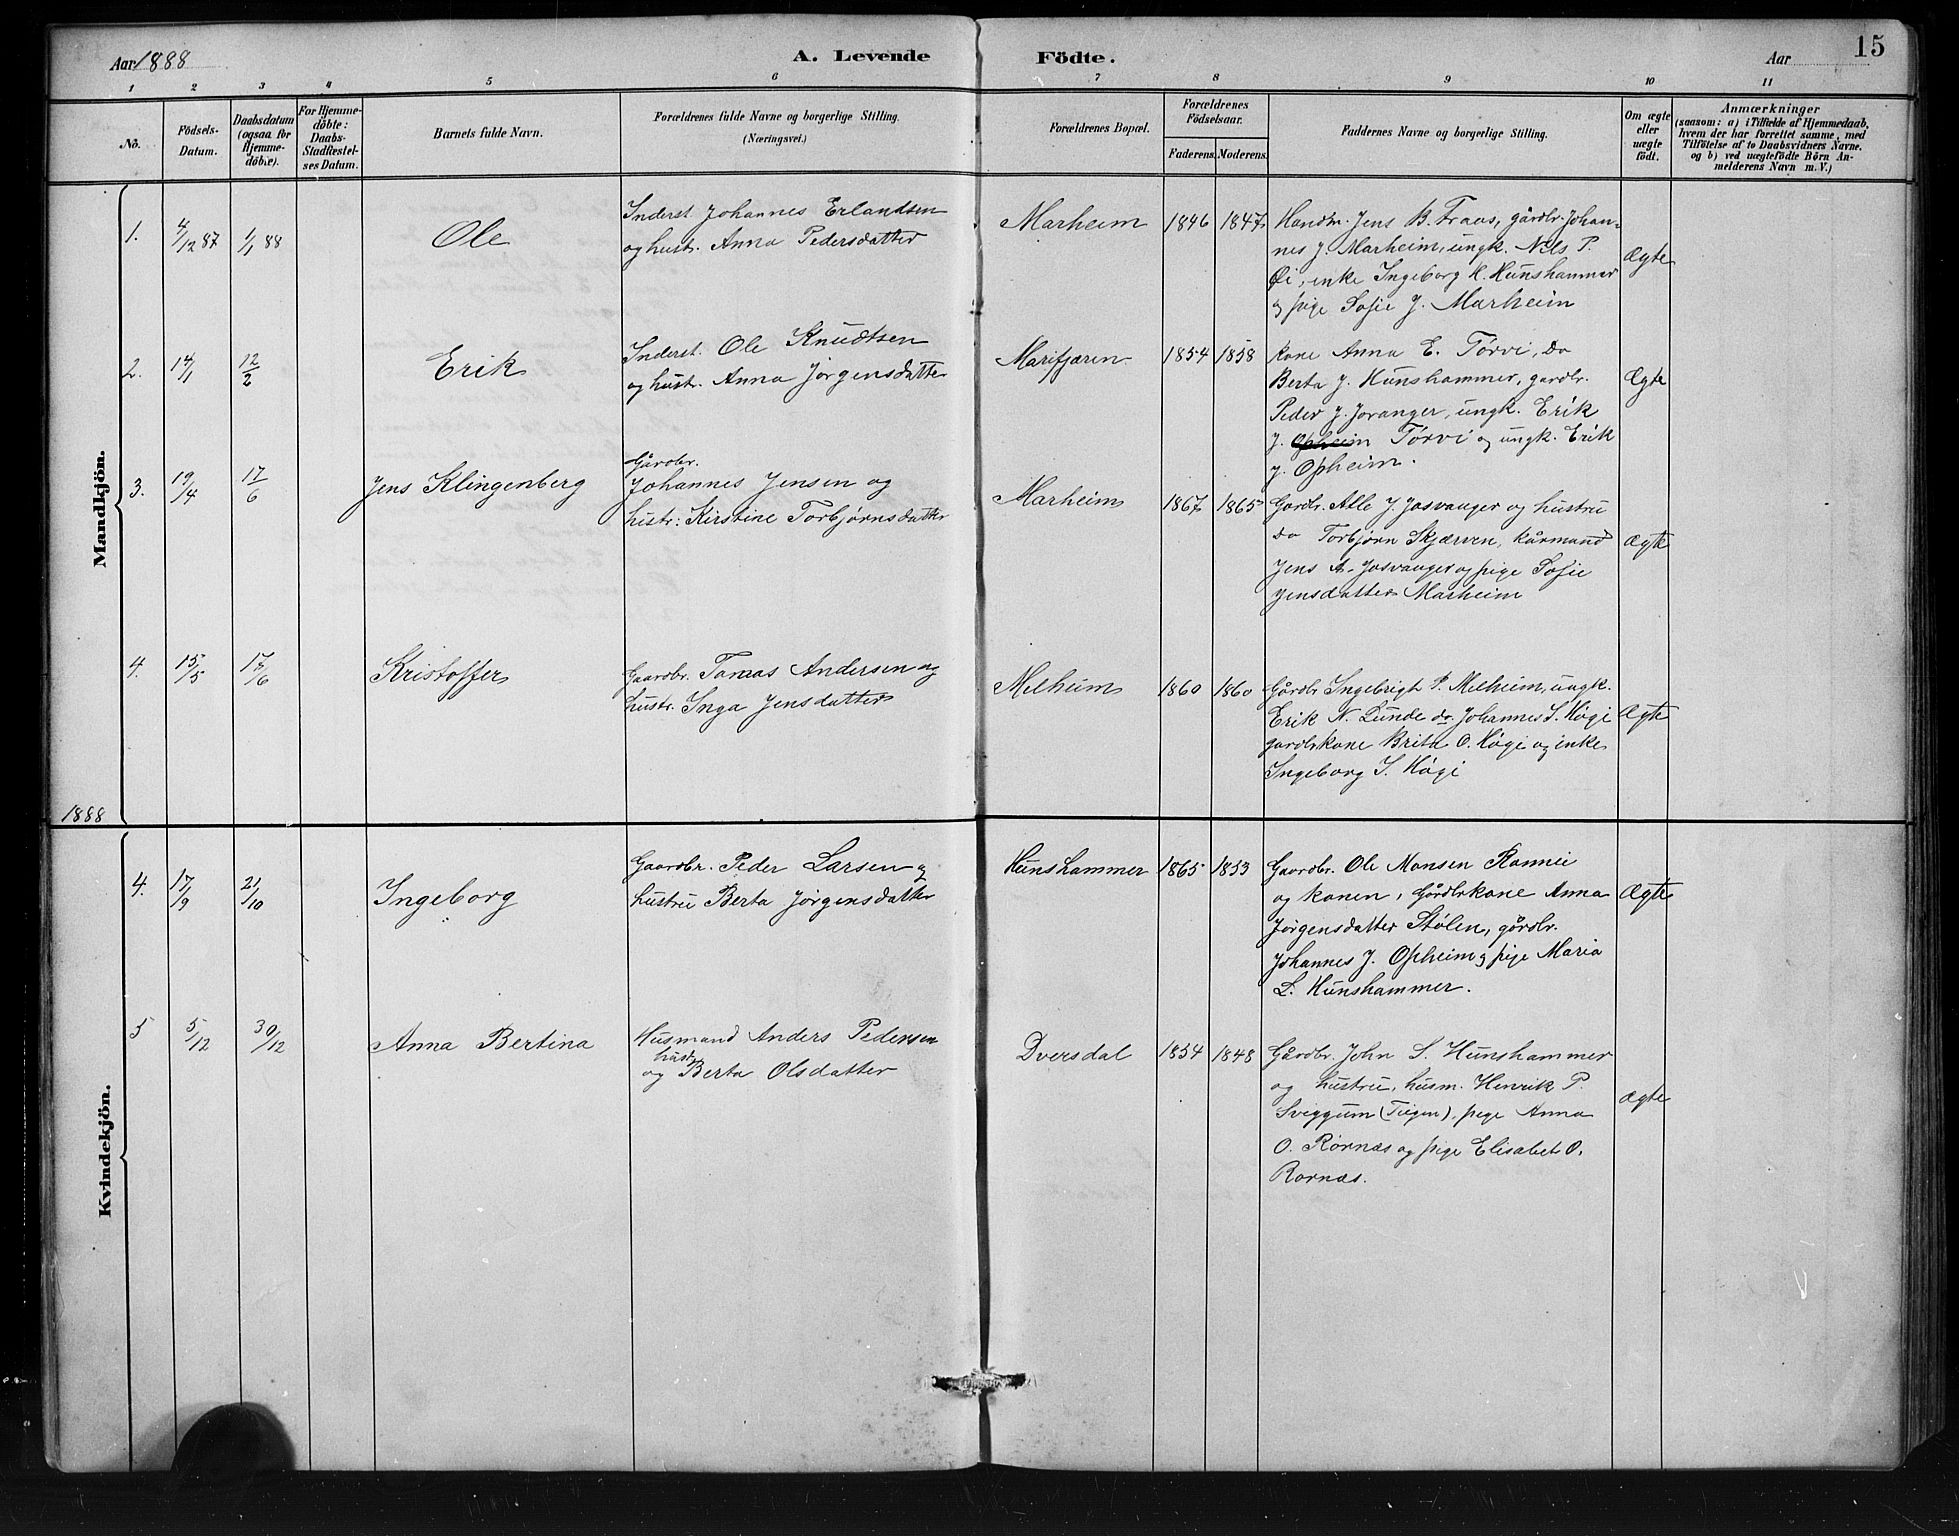 Aar 1888
A. Levende
Födte.
Aar
15
1 2 3 4 5 6 7 8 9 10 11
No.
Födsels-
Datum.
Daabsdatum
(ogsaa for
Hjemme-
döbte).
For Hjemme-
döbte:
Daabs-
Stadfæstel-
ses Datum.
Barnets fulde Navn.
Forældrenes fulde Navne og borgerlige Stilling.
(Næringsvei.)
Forældrenes Bopæl.
Forældrenes
Födselsaar.
Faderens. Moderens.
Faddernes Navne og borgerlige Stilling.
Om ægte
eller
uægte
födt.
Anmærkninger
(saasom: a) i Tilfælde af Hjemmedaab,
hvem der har forrettet samme, med
Tilföielse af to Daabsvidners Navne.
og b) ved uægtefödte Börn An-
melderens Navn m. V.)
Mandkjön.
1. 4/12 87 1/1 88 Ole
Inderst Johannes Erlandsen
og hustr. Anna Pedersdatter
Marheim 1846 1847
Handm. Jens B. Fraas, gårdbr. Johan-
nes J. Marheim, ungk. Nils P.
Øi, enke Ingeborg K. Hunshammer
og pige Sofie J. Marheim
Ægte
2. 14/1 12/2 Erik
Inderst. Ole Knudtsen
og hustr. Anna Jørgensdatter
Marifjæren 1854 1858
kone Anna E. Tørvi, do
Berta J. Hunshammer, gardbr.
Peder J. Joranger, ungk. Erik
J. Opheim Tørvi og ungk. Erik
J. Opheim.
Ægte
3. 19/4 17/6 Jens Klingenberg
Gårdbr.
Johannes Jensen og
hustr: Kirstine Torbjørnsdatter
Marheim 1867 1865
Gardbr. Atle J. Josvanger og hustru
do Torbjørn Skjærven, kårmand
Jens A. Josvanger og pige Sofie
Jensdatter Marheim
Ægte
4. 15/5 17/6 Kristoffer
Gaardbr. Tomas Andersen og
hustr. Inga Jensdatter
Melheim 1860 1860
Gårdbr Ingebrigt P. Melheim, ungk.
Erik N. Lunde do. Johannes S. Høgi
gardbrkone Brita O. Høgi og enke
Ingeborg S. Høgi
Ægte
1888
Kvindekjön.
4. 17/9 21/10 Ingeborg
Gaardbr. Peder Larsen og
hustru Berta Jørgensdatter
Hunshammer 1865 1853
Gaardbr. Ole Monsen Rønnei
og konen, Gårdbrkone Anna
Jørgensdatter Stølen, gårdbr.
Johannes J. Opheim og pige Maria
L. Hunshammer.
Ægte
5 5/12 30/12 Anna Bertina
Husmand Anders Pedersen
hustr
og Berta Olsdatter
Dversdal 1854 1848
Gårdbr. John S. Hunshammer
og hustru, husm. Henrik P.
Sveggum (Teigen), pige Anna
O. Rørnæs og pige Elisabet O.
Rørnæs.
Ægte